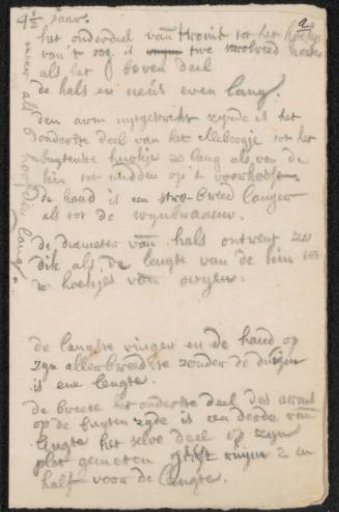 9½ jaar.
het onderdeel van't Hooft tot het hoekje
van't oog is twe stroobreed korter
als het boven deel
de hals en neus even lang.
den arm uytgestrekt zynde is het
onderste deel van het elleboogje tot het
buytenste knokje zo lang als van de
kin tot midden op 't voorhooft.
de hand is een stro-breed langer
als tot de wynbraauwen.
de diameter van hals ontrent zo
dik als de lengte van de kin tot
de hoekjes van oogen.
de langste vinger en de hand op
zyn allerbreedste zonder de duijm
is ene lengte.
de breete het onderste deel des arms
op de buyten zyde is een derde van
lengte het selve deel op zyn
plat gemeten gaat ruym 2 en
half voor de lengte.
even als 6 hoofden lang.